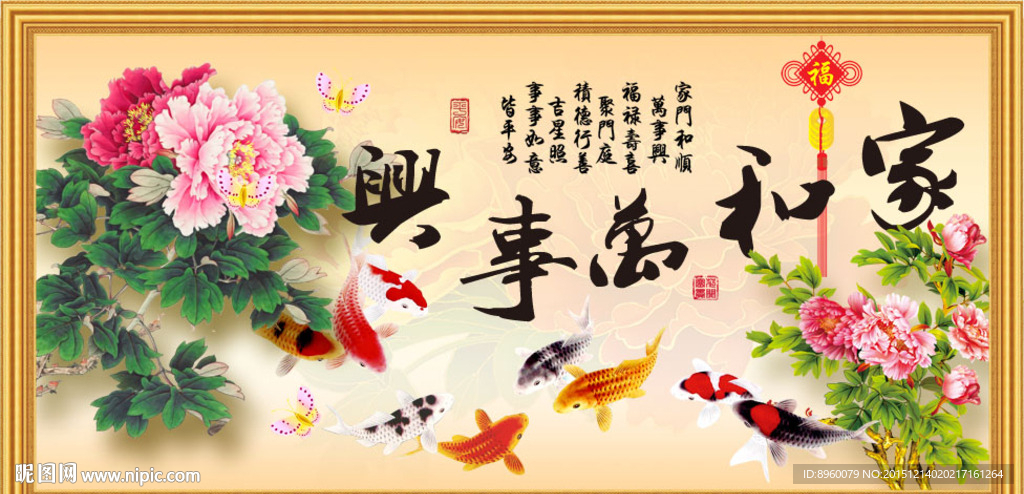 家和萬事興
福
家門和順
萬事興
福禄壽喜
聚門庭
積德行善
吉星照
事事如意
皆平安
昵图网 www.nipic.com
ID:8960079 NO:20151214020217161264